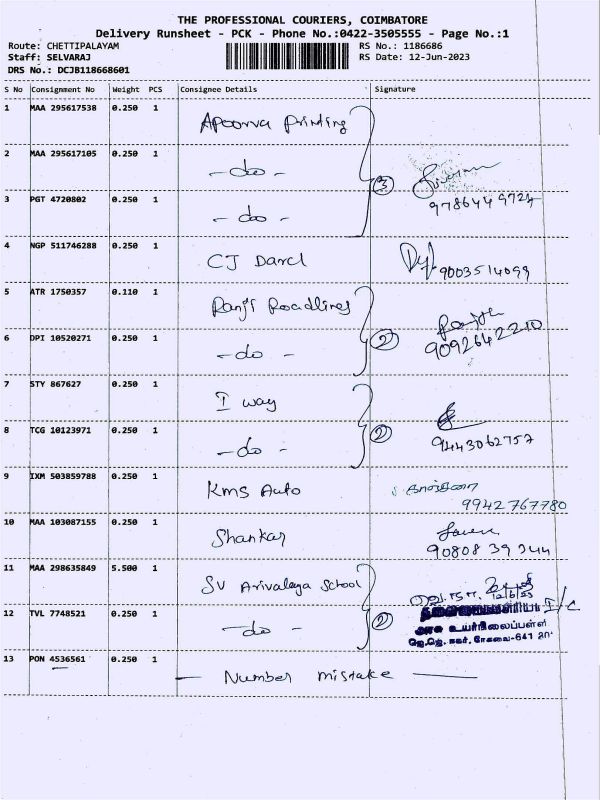 THE PROFESSIONAL COURIERS, COIMBATORE
Delivery Runsheet - PCK - Phone No.:0422-3505555 - Page No.:1
Route: CHETTIPALAYAM RS No.: 1186686
Staff: SELVARAJ RS Date: 12-Jun-2023
DRS No.: DCJB118668601
S No Consignment No Weight PCS Consignee Details Signature
1 MAA 295617538 0.250 1 Apoorva Printing
2 MAA 295617105 0.250 1 -do-
3
3 PGT 4720802 0.250 1 -do- 9786449724
4 NGP 511746288 0.250 1 CJ Darcl 9003514099
5 ATR 1750357 0.110 1 Ranji Roadlines
6 DPI 10520271 0.250 1 -do- 2 9092642210
7 STY 867627 0.250 1 I way
8 TCG 10123971 0.250 1 -do- 2 9443062757
9 IXM 503859788 0.250 1 KMS Auto
9942767780
10 MAA 103087155 0.250 1 Shankar
90808 39344
11 MAA 298635849 5.500 1 SV Arivalaya School 12/6/23
12 TVL 7748521 0.250 1 -do- 2
அரச உயர்நிலைப்பள்ளி
13 PON 4536561 0.250 1 - Number mistake -